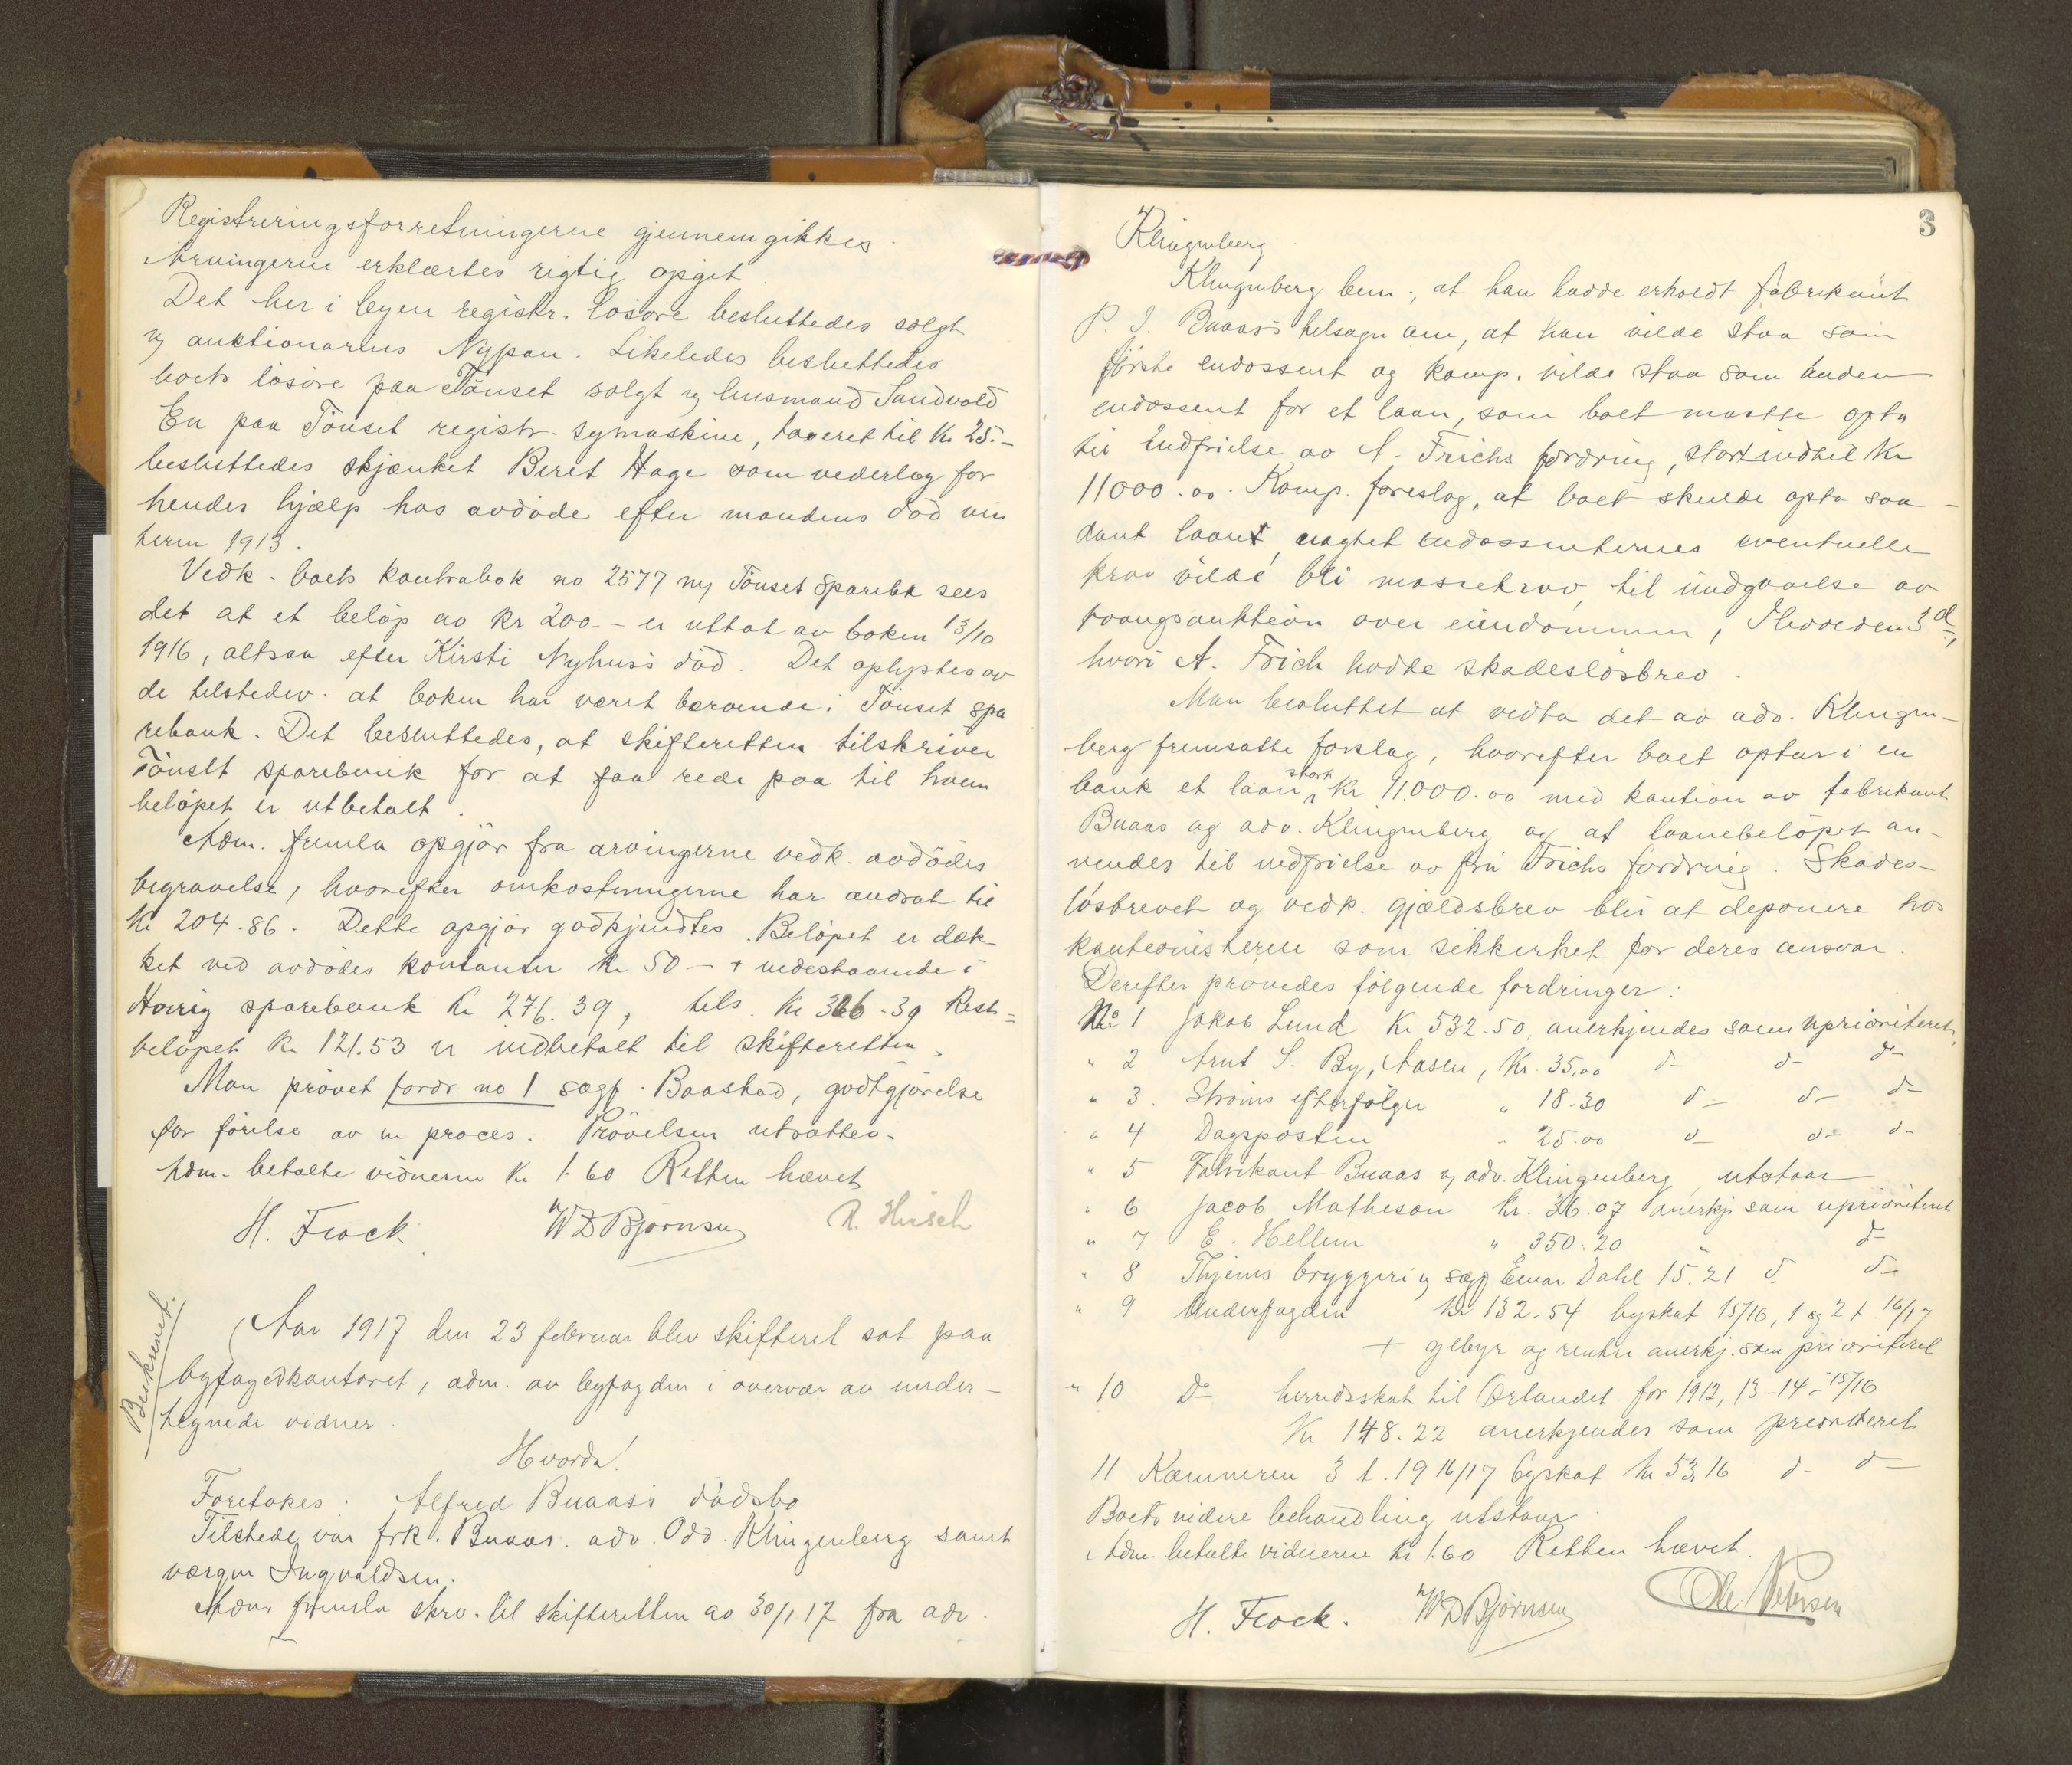 Registreringsforretningerne gjennemgikkes.
Arvingerne erklærtes rigtig opgit
Det her i byen registr. løsøre besluttedes solgt
v auktionarius Nypan. Likeledes besluttedes
boets løsøre paa Tönset solgt v husmand Sandvold
En paa Tönset registr. symaskine, taxeret til Kr 25.-
besluttedes skjænket Beret Hage som vederlag for
hendes hjælp hos avdöde efter mandens död vin
teren 1913.
Vedk. boets kontrabok no 2577 Tönset Sparebk sees
det at et belöp av kr 200.- er uttat av boken 13/10
1916, altsaa efter Kirsti Nyhus's död. Det oplystes av
de tilstedev. at boken har været beroende i Tönset spa
rebank. Det besluttedes, at skifteretten tilskriver
Tönset sparebank for at faa rede paa til hvem
belöpet er utbetalt.
Adm. fremla opgjör fra arvingerne vedk. avdödes
begravelse, hvorefter omkostningerne har andrat til
Kr 204.86. Dette opgjör godkjendtes. Belöpet er dæk-
ket ved avdödes kontanter Kr 50 - + indestaaende i
sparebank Kr 276.39, tils. Kr 326.39 Rest-
belöpet Kr 121.53 er indbetalt til skifteretten.
Man prövet fordr no 1 sagf. Baastad, godtgjörelse
for förelse av en proces. Prövelsen utsattes.
Adm. betalte vidnerne Kr 1.60 Retten hævet
H. Flock. W D Bjørnsen R. Hirsch
Beskrevet.
Aar 1917 den 23 februar blev skifteret sat paa
byfogedkontoret, adm. av byfogden i overvær av under-
tegnede vidner.
Hvorda!
Foretokes: Alfred Buaas's dödsbo
Tilstede var frk. Buaas. adv. Odd Klingenberg samt
værgen Ingvaldsen.
Adm fremla skrv. til skifteretten av 30/1 17 fra adv.
3
Klingenberg
Klingenberg bem., at han hadde erholdt fabrikant
P. I. Buaas's tilsagn om, at han vilde staa som
förste endossent og komp. vilde staa som anden
endossent for et laan, som boet maatte opta
til indfrielse av A. Frichs fordring, stort indtil Kr
11000.00. Komp. foreslog, at boet skulde opta saa-
dant laan, uagtet endossenternes eventuelle
krav vilde bli massekrav, til undgaaelse av
tvangsauktion over eiendommen, 3d,
hvori A. Frich hadde skadeslösbrev.
Man besluttet at vedta det av adv. Klingen-
berg fremsatte forslag, hvorefter boet optar i en
bank et laan stort Kr 11.000.00 med kaution av fabrikant
Buaas og adv. Klingenberg og at laanebelöpet an-
vendes til indfrielse av fru Frichs fordring. Skades-
lösbrevet og vedk. gjældsbrev blir at deponere hos
kautionisterne som sikkerhet for deres ansvar.
Derefter prövedes fölgende fordringer:
No 1 Jakob Lund Kr 532.50, anerkjendes som uprioriteret,
" 2 Arnt S. By, Aasen, Kr. 35,00 do do do
" 3. Ströms efterfölger " 18.30 do do do
" 4 Dagsposten " 25.00 do do do
" 5 Fabrikant Buaas v adv. Klingenberg, utstaar
" 6 Jacob Matheson Kr. 36.07 anerkj. som uprioriteret
" 7 E. Hellem " 350.20 " do
" 8 Thjems bryggeri v sagf Einar Dahl 15.21 do do
" 9 Underfogden Kr 132.54 byskat 15/16, 1 og 2 t. 16/17
+ gebyr og renter anerkj. som prioriteret
" 10 Do herredsskat til Ørlandet for 1912, 13-14-15/16
Kr 148.22 anerkjendes som prioriteret
11 Kæmneren 3 t. 1916/17 byskat Kr 53,16 do do
Boets videre behandling utstaar.
Adm. betalte vidnerne Kr 1.60 Retten hævet.
H. Flock. W D Bjørnsen Ole Petersen